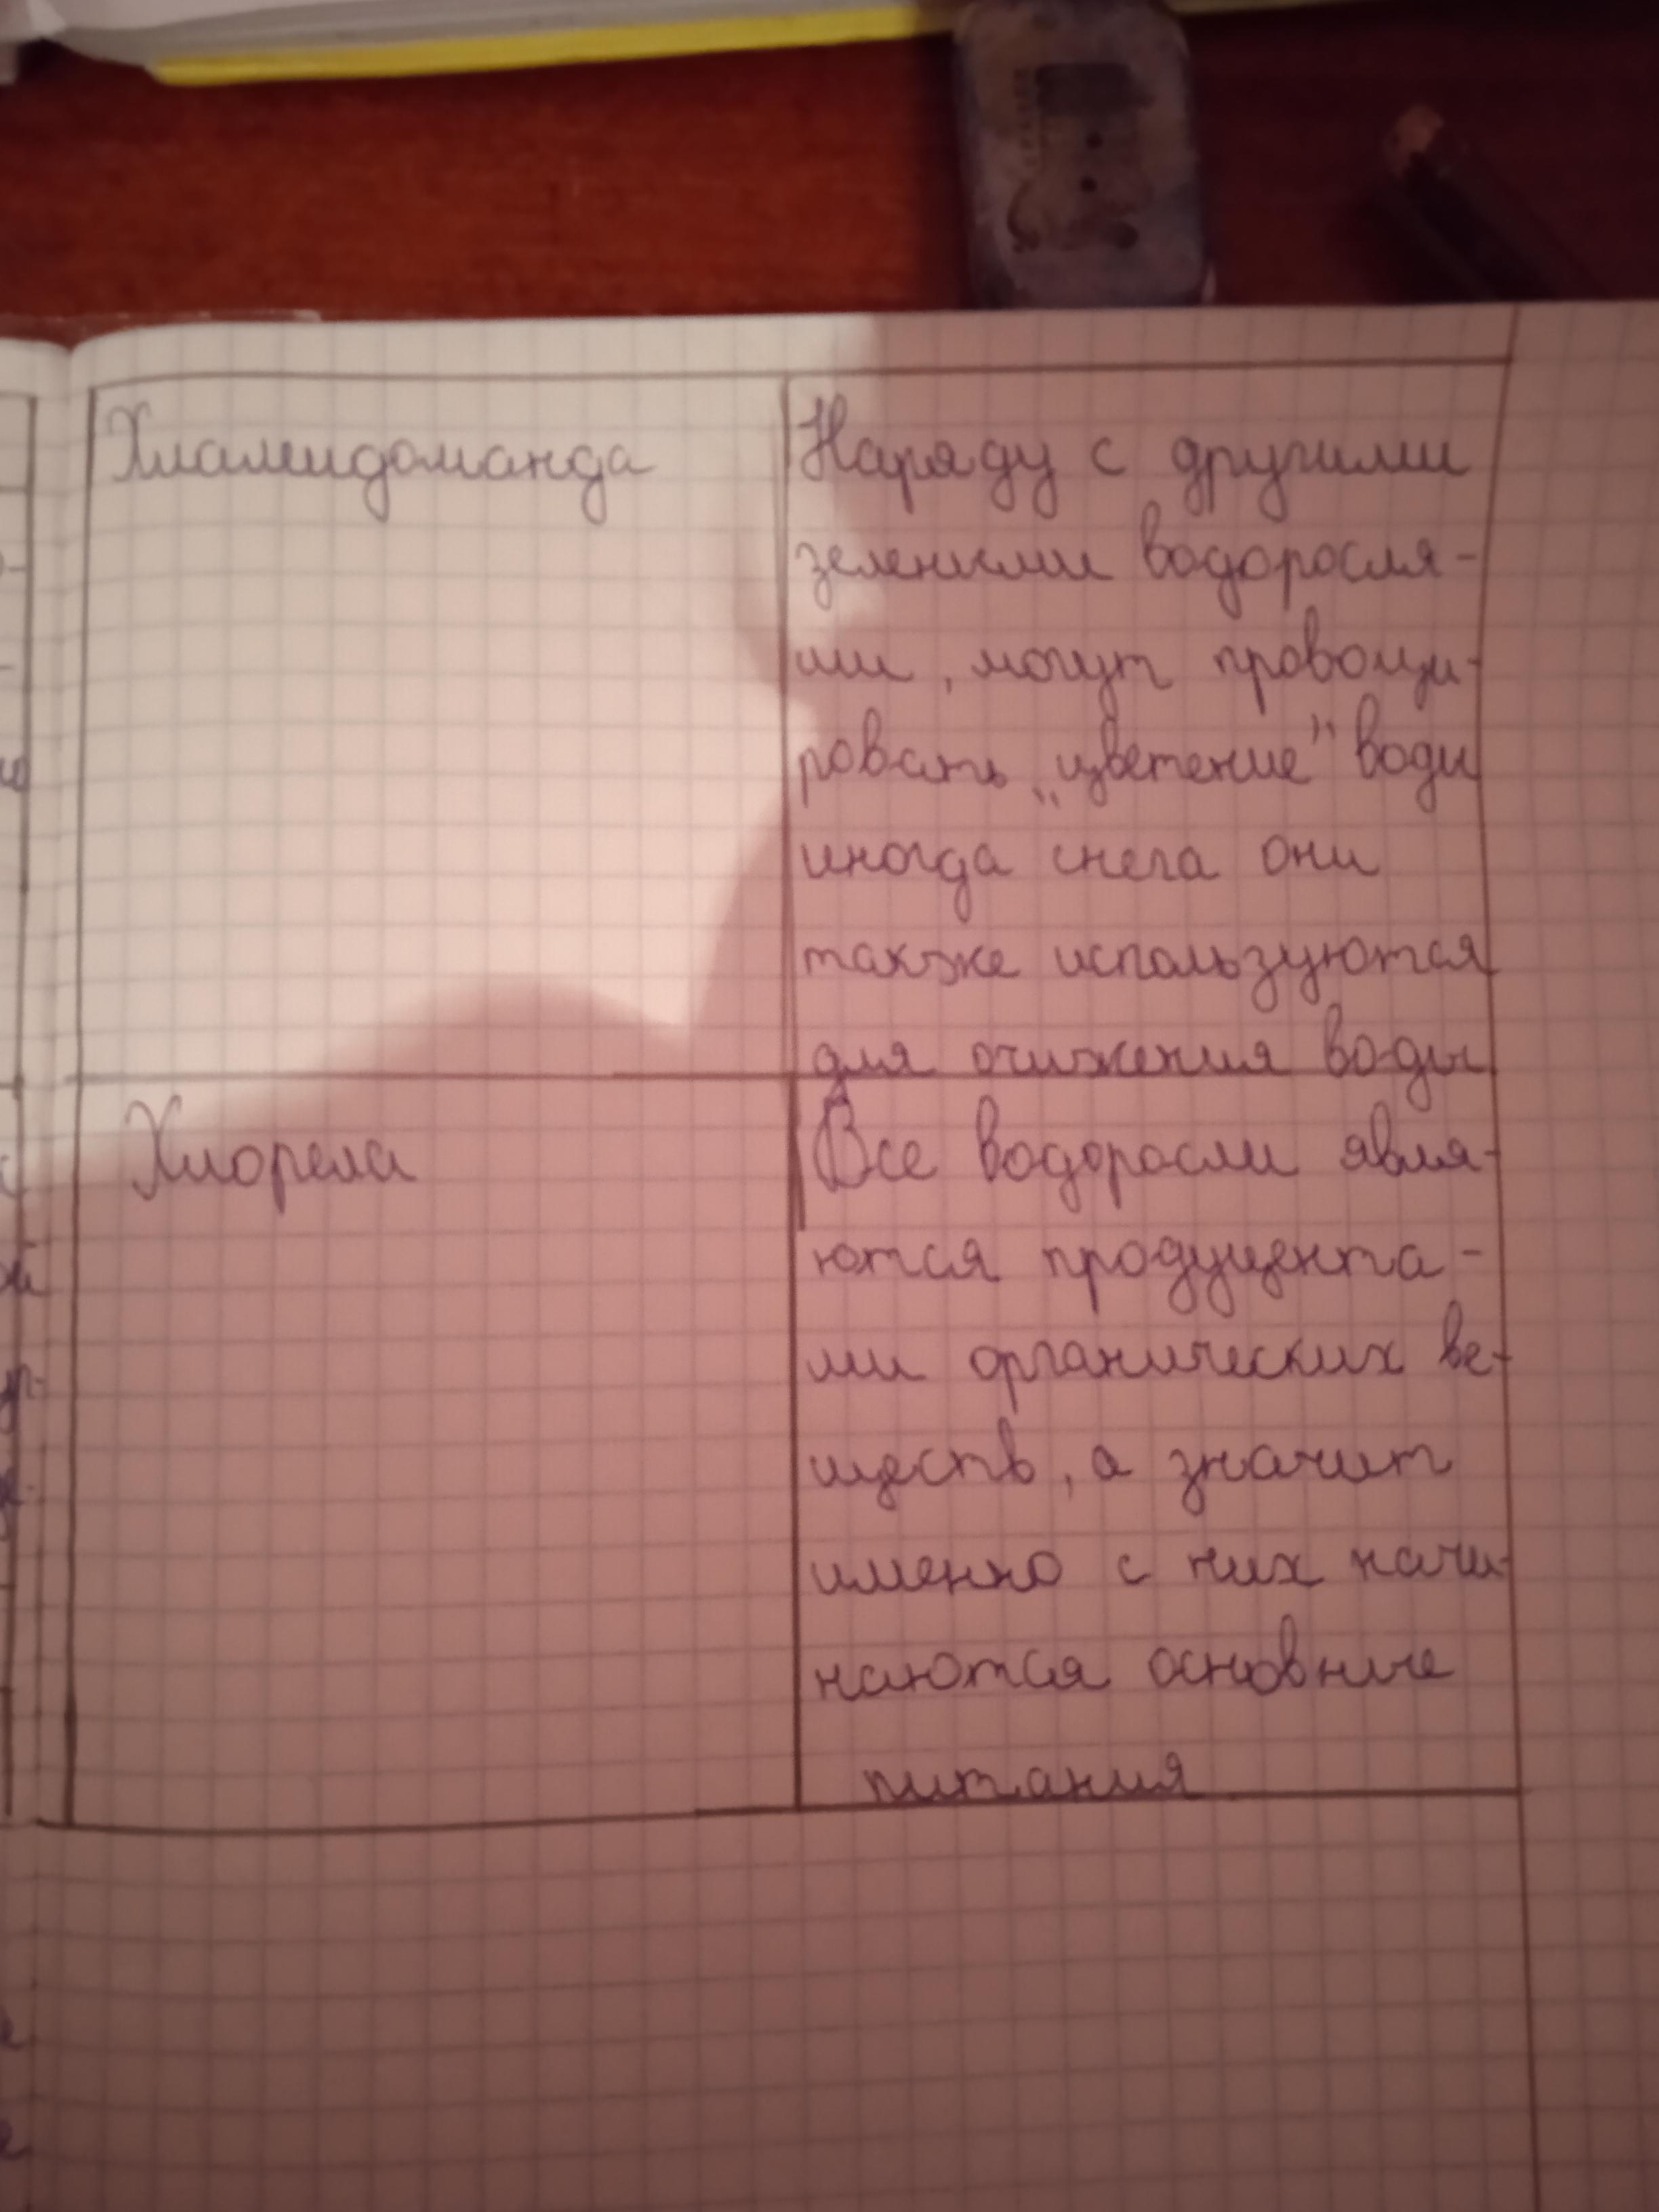 Хламидоманда
Наряду с другими
зелеными водоросля-
ми, могут провоци-
ровать „цветение” воды
иногда снега они
также используются
для очижения воды
Хлорела
Все водоросли явля-
ются продуцента-
ми органических ве-
ществ, а значит
именно с них начи-
наются основные
питания